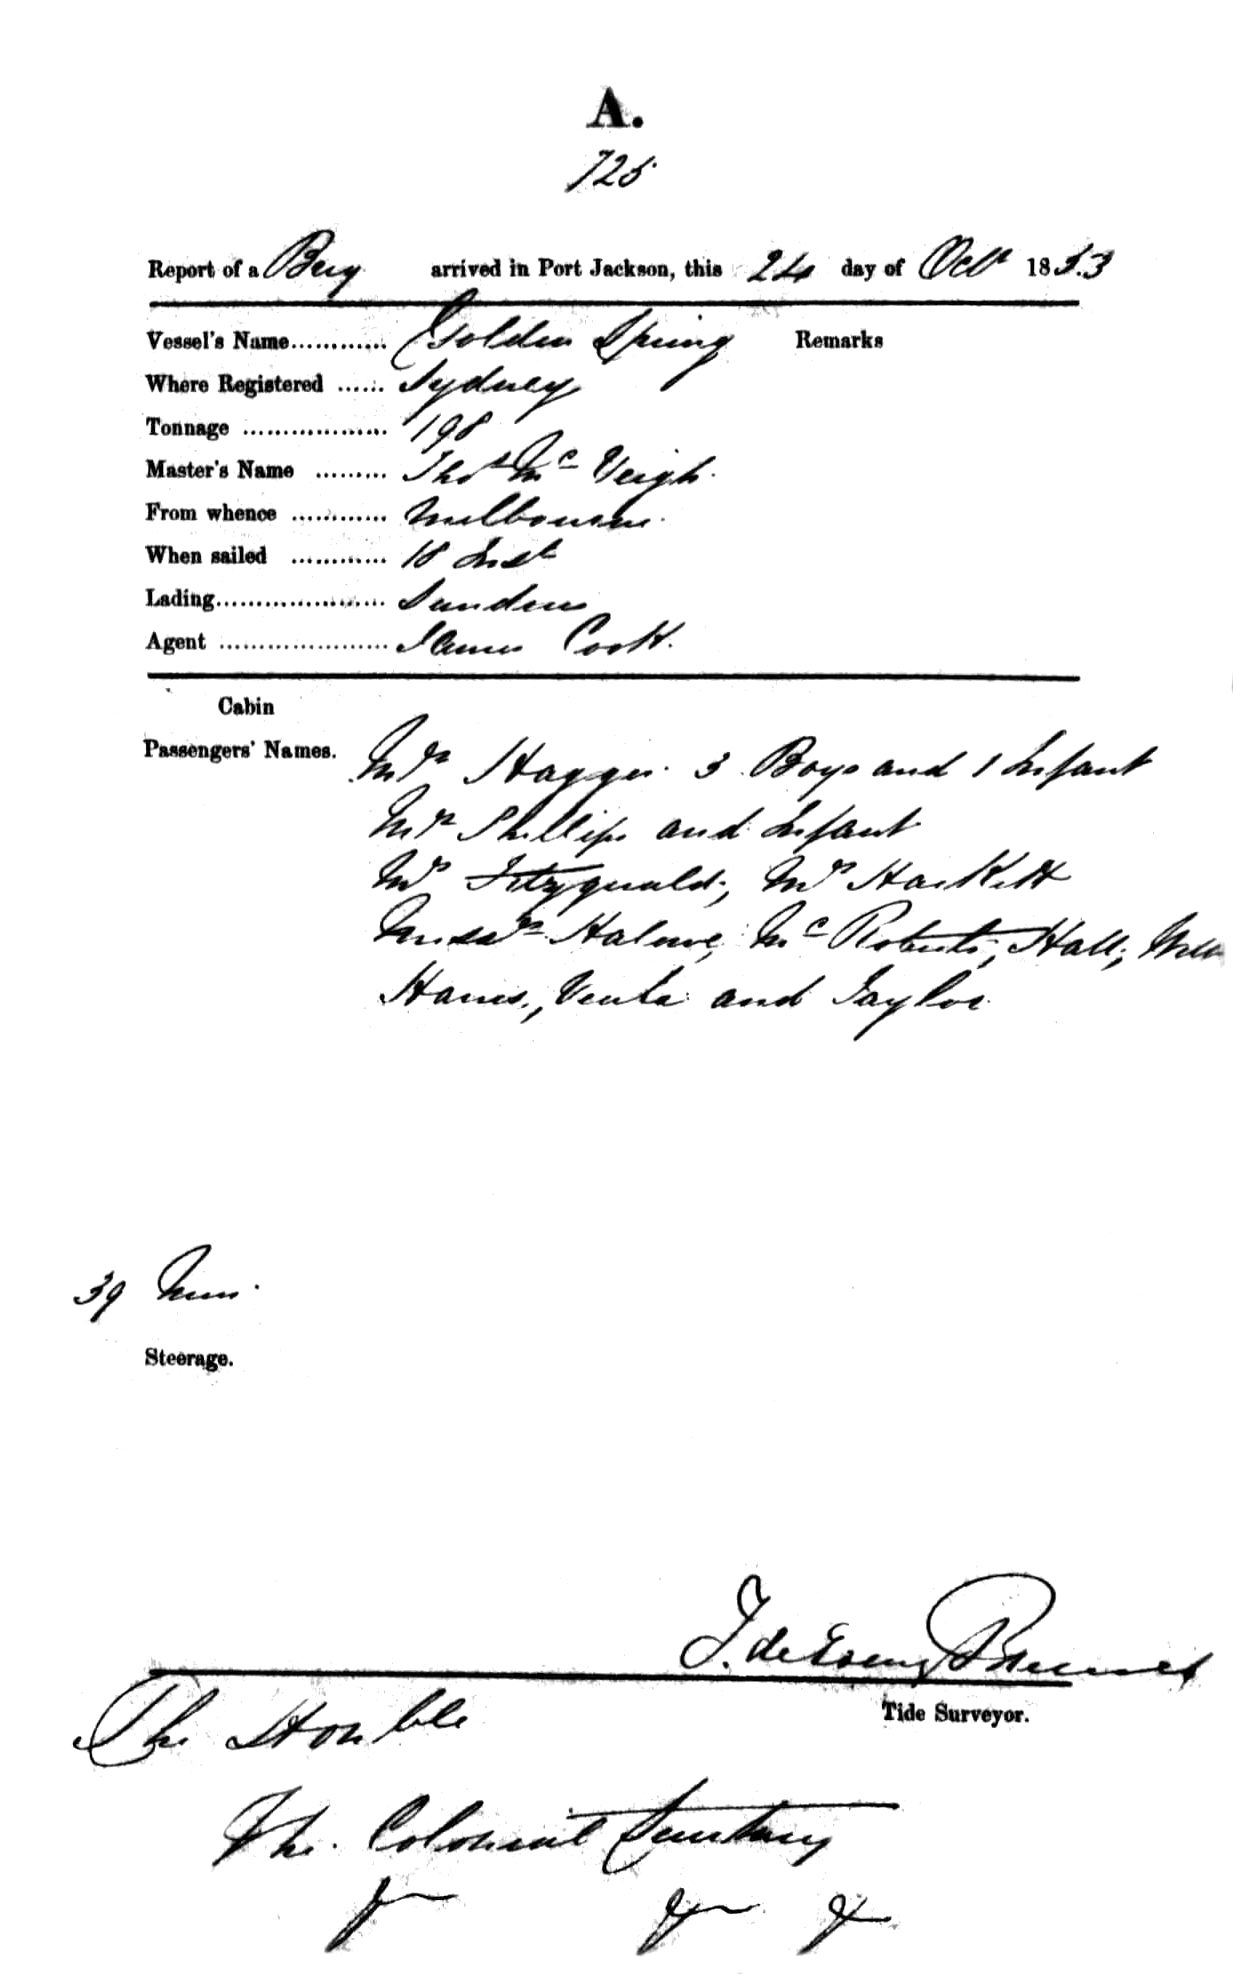 A.
725
Report of a Brig arrived in Port Jackson, this 24 day of Octr 1853
Vessel's Name............ Golden Spring Remarks
Where Registered ...... Sydney
Tonnage .................. 198
Master's Name ......... Thos Mc Veigh.
From whence ............ Melbourne.
When sailed ............ 18 Inst
Lading..................... Sundries
Agent ..................... James Cook.
Cabin
Passengers' Names. Mrs 3 Boys and 1 Infant
Mrs Phillips and Infant
Mr Fitzgerald, Mr Haskett
Messrs Mc Roberts, Hall,
and Taylor
39 Men.
Steerage.
Tide Surveyor.
The Honble
The Colonial Secretary
&c &c &c